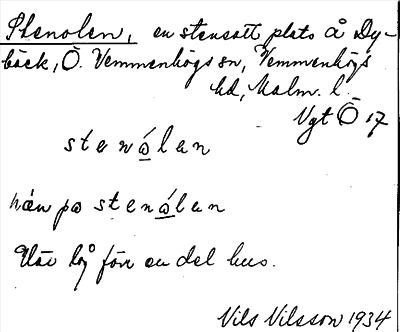 Stenolen, en stensatt plats å Dy-
bäck, Ö. Vemmenhögs sn, Vemmenhögs
hd, Malm. l.
Vgt Ö 17
stenálen
nän pa stenálen
Där låg förr en del hus.
Nils Nilsson 1934